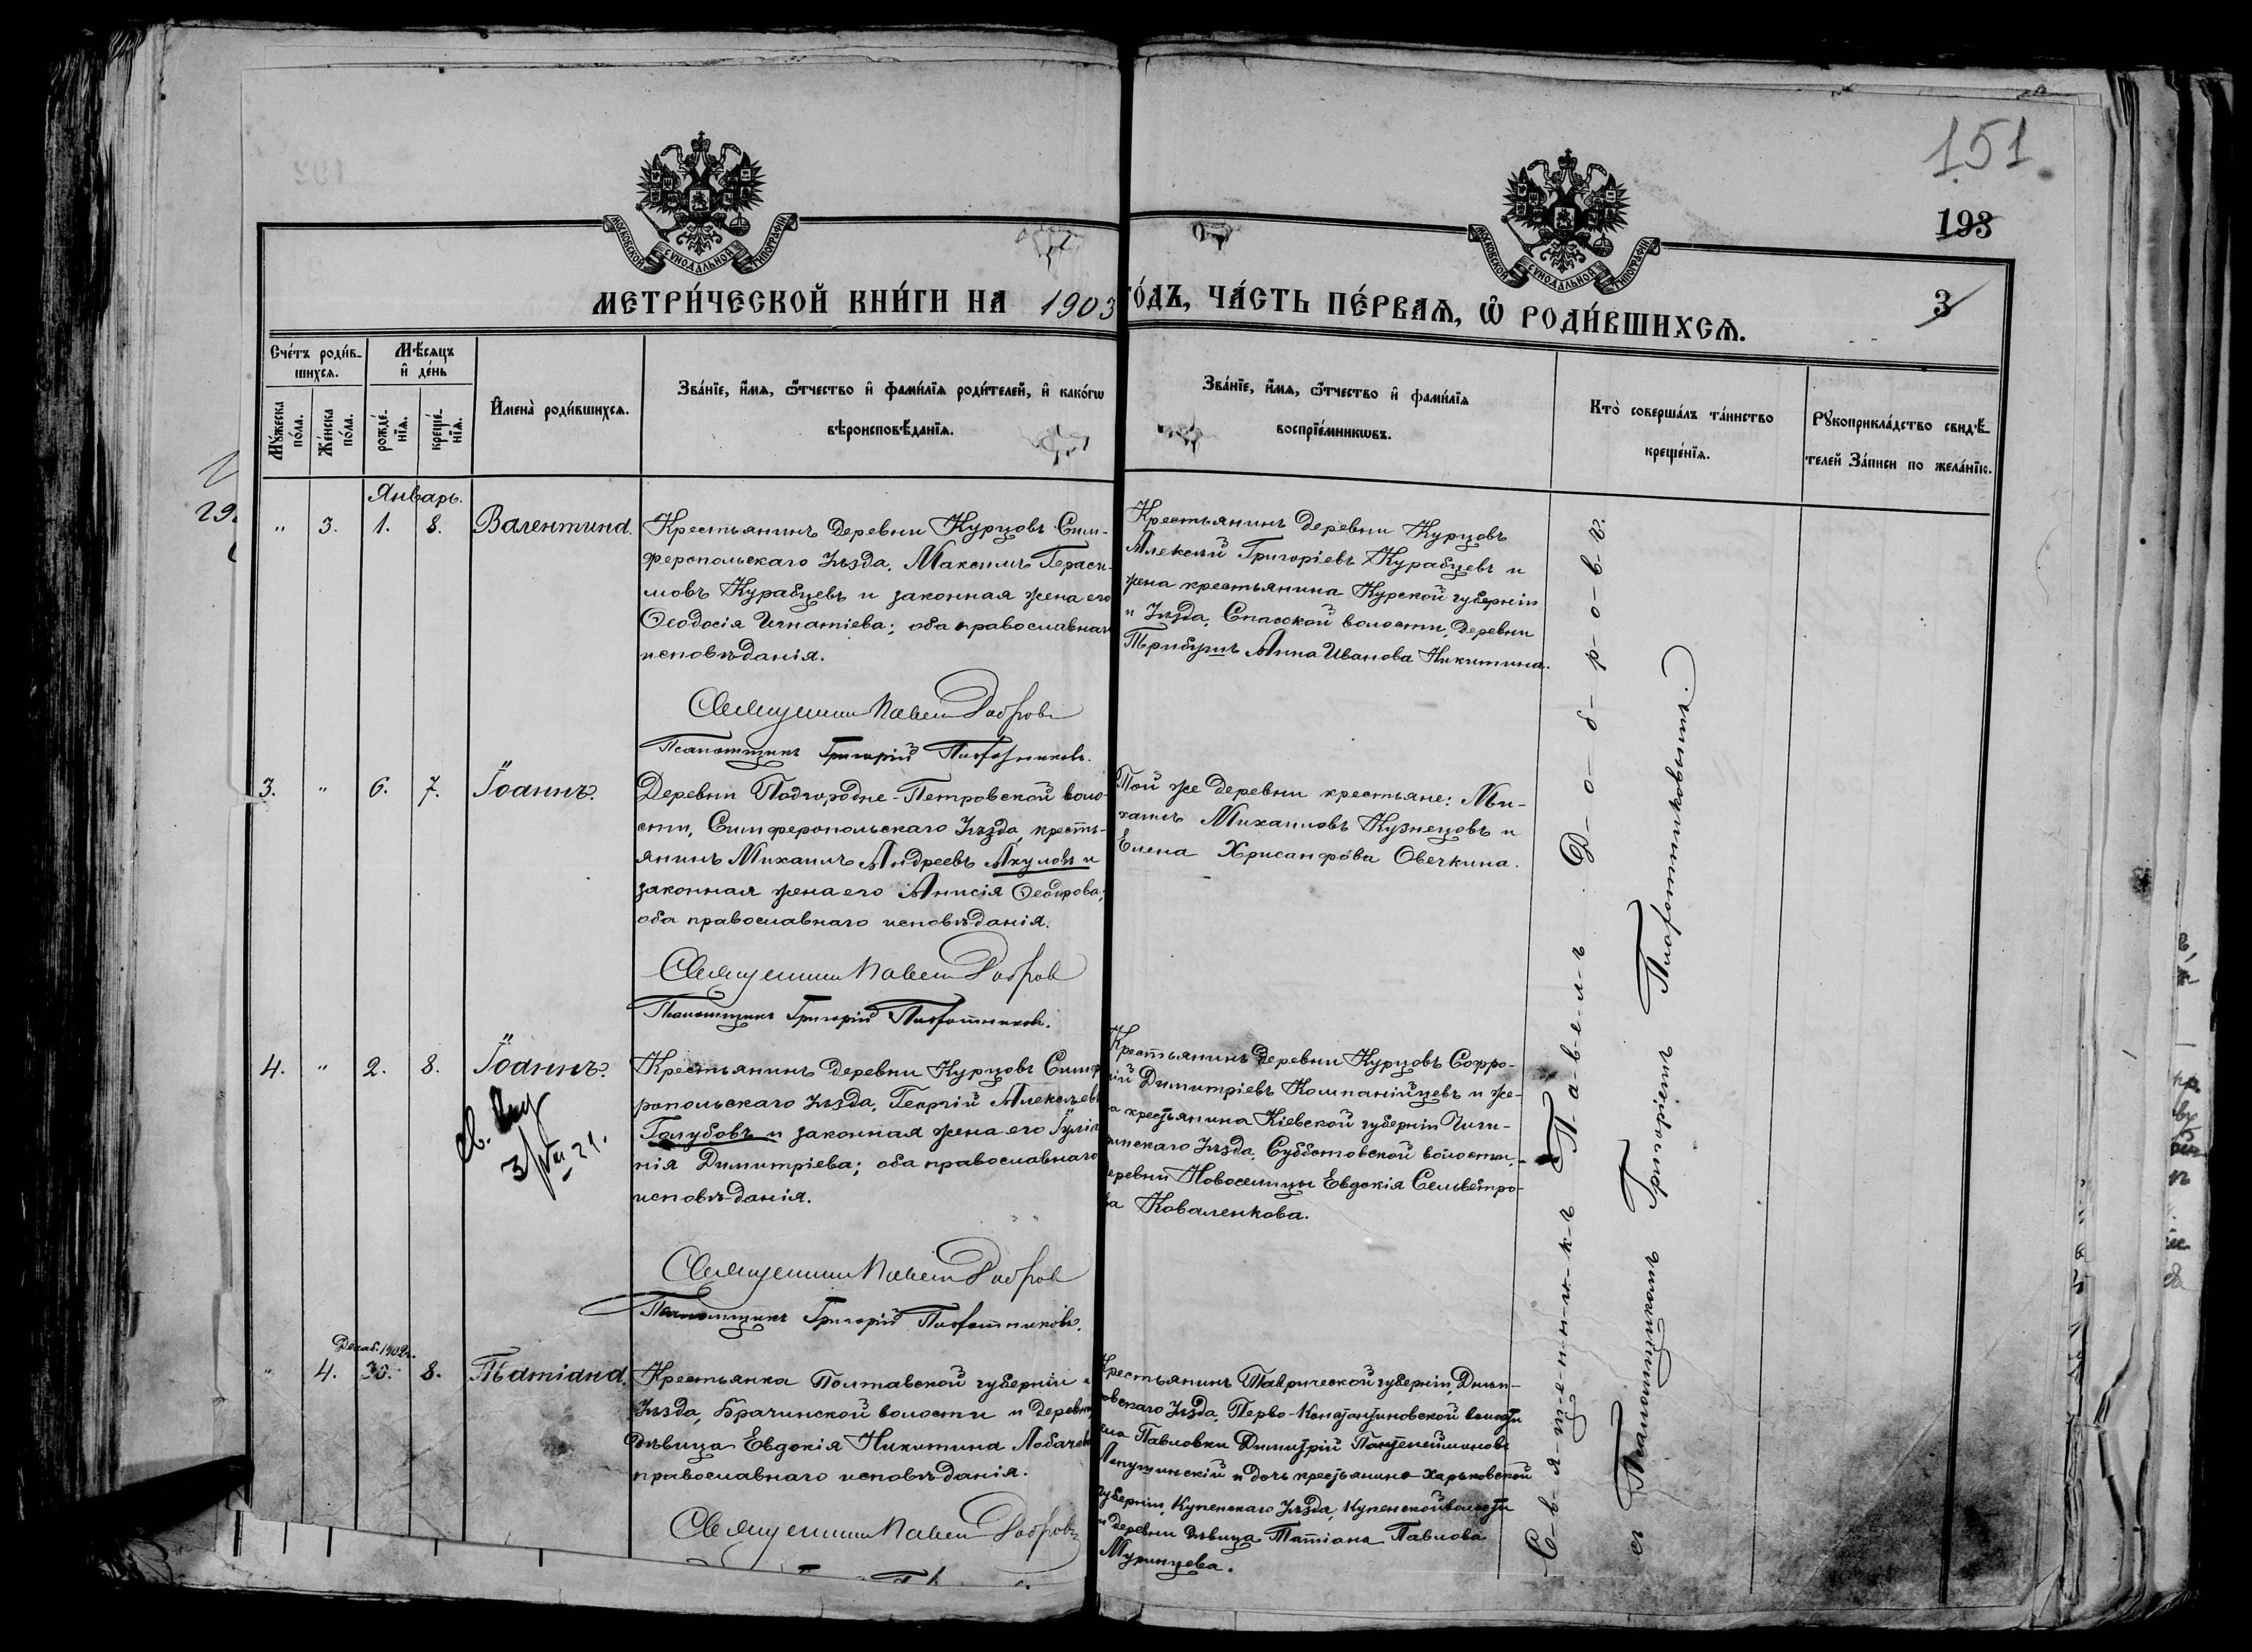 151
193
3
МОСКОВСКОЙ СѴНОДАЛЬНОЙ ТИПОГРАФІИ
МОСКОВСКОЙ СѴНОДАЛЬНОЙ ТИПОГРАФІИ
МЕТРИ́ЧЕСКОЙ КНИ́ГИ НА 1903 ГО́ДЪ, ЧА́СТЬ ПЕ́РВАѦ, Ѡ҆ РОДИ́ВШИХСѦ.
Сче́тъ роди́в-
шихсѧ.
Мѣ́сѧцъ
и҆ де́нь
Мꙋ́жеска
по́ла.
Же́нска
по́ла.
рожде́-
нїѧ.
креще́-
нїѧ.
И҆мена̀ роди́вшихсѧ.
Зва́нїе, и҆́мѧ, ѻ҆́тчество и҆ фамѝлїѧ роди́телей, и҆ како́гѡ
вѣроисповѣ́данїѧ.
Зва́нїе, и҆́мѧ, ѻ҆́тчество и҆ фами́лїѧ
воспрїе́мникѡвъ.
Кто̀ соверша́лъ та́инство
креще́нїѧ.
Рꙋкоприкла́дство свидѣ́-
телей за́писи по жела́нїю.
Январь.
29.
" 3. 1. 8. Валентина.
Крестьянинъ деревни Курцовъ Сим-
феропольскаго Уѣзда, Максимъ Гераси-
мовъ Курабцевъ и законная жена его
Ѳеодосія Игнатіева; оба православнаго
исповѣданія.
Священникъ Павелъ Добровъ
Псаломщикъ Григорій Плофотниковъ.
Крестьянинъ деревни Курцовъ
Алексѣй Григоріевъ Курабцевъ и
жена крестьянина Курской губерніи
и Уѣзда, Спасской волости, деревни
Анна Иванова Никитина.
3. " 6. 7. Іоаннъ.
Деревни Подгородне-Петровской воло-
сти, Симферопольскаго Уѣзда, кресть-
янинъ Михаилъ Андреевъ Акуловъ и
законная жена его Анисія Ѳеодорова;
оба православнаго исповѣданія.
Священникъ Павелъ Добровъ
Псаломщикъ Григорій Плофотниковъ.
Той же деревни крестьяне: Ми-
хаилъ Михаиловъ Кузнецовъ и
Елена Хрисанфова Овечкина.
4. " 2. 8. Іоаннъ.
Крестьянинъ деревни Курцовъ Симф
ропольскаго Уѣзда, Георгій Алексѣевъ
Голубовъ и законная жена его Іулі
нія Димитріева; оба православнаго
исповѣданія.
Священникъ Павелъ Добровъ
Псаломщикъ Григорій Плофотниковъ.
Крестьянинъ деревни Курцовъ Софро-
ній Димитріевъ Компанійцевъ и же-
на крестьянина Кіевской губерніи Чиги-
ринскаго Уѣзда, Субботовской волости,
деревни Новоселицы Евдокія Сельвестро-
ва Коваленкова.
Декаб. 1902г.
" 4. 30. 8. Татіана.
Крестьянка Полтавской губерніи и
Уѣзда, Брачинской волости и деревни
дѣвица Евдокія Никитина Лобачев
православнаго исповѣданія.
Священникъ Павелъ Добровъ
Крестьянинъ Таврической губерніи, Днѣп-
ровскаго Уѣзда, Перво-Константиновской волости
села Павловки Димитрій Пантелеймоновъ
Лапушинскій и дочь крестьянина Харьковской
губерніи, Купенскаго Уѣзда, Купенской волости
и деревни дѣвица Татіана Павлова
Муринцева.
С-в-я-щ-е-н-н-и-к-ъ П-а-в-е-л-ъ Д-о-б-р-о-в-ъ.
съ Псаломщикомъ Григоріемъ Плофотниковымъ.